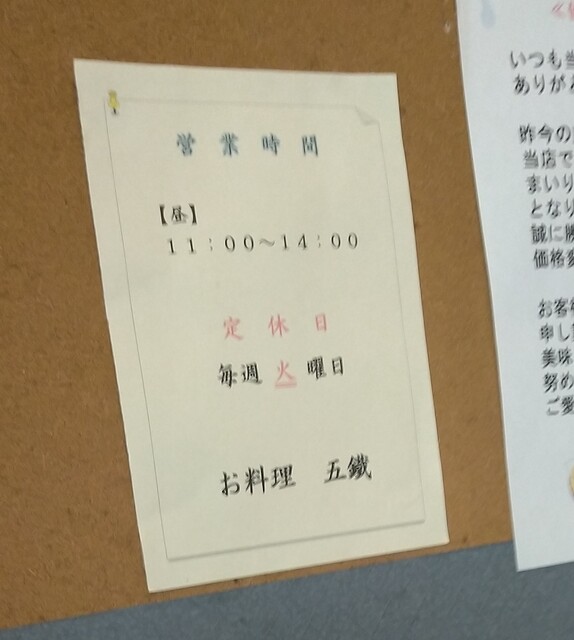 営業時間
【昼】
11:00～14:00
定休日
毎週火曜日
お料理 五鐵
いつも
ありが
昨今の
当店で
まいり
となり
誠に
価格
お客
申し
美味
努め
ご愛